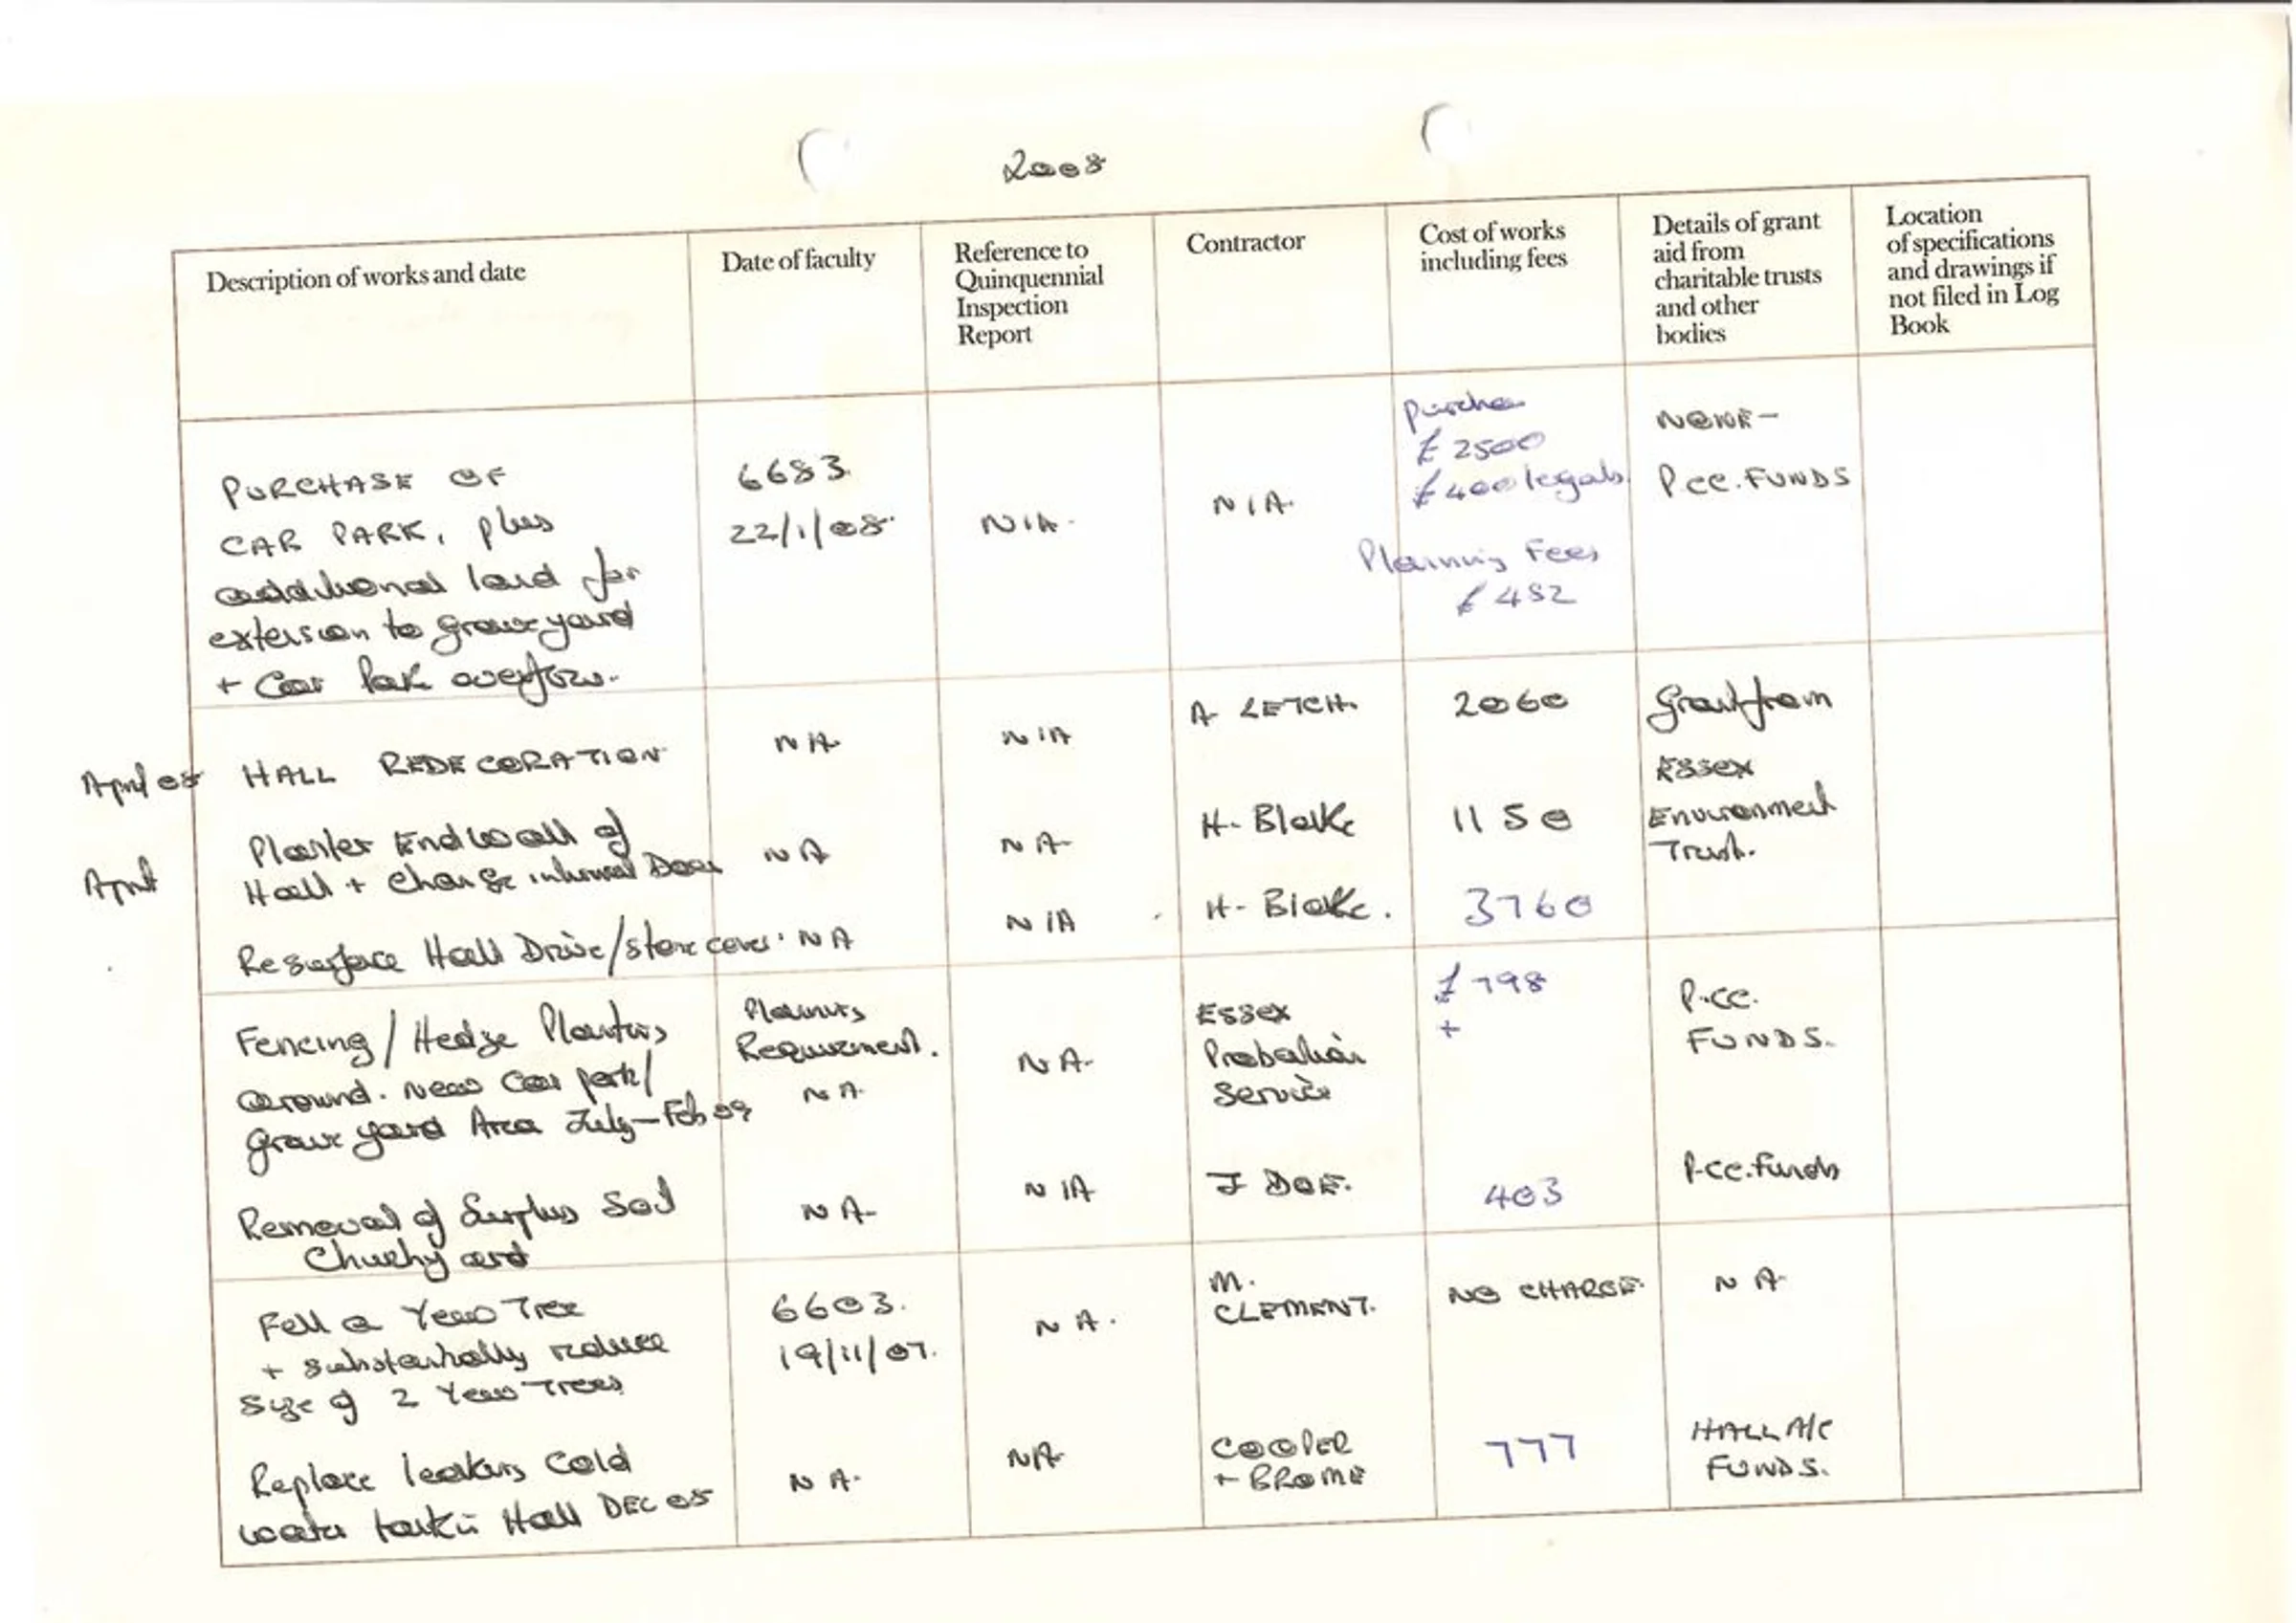 2008
Description of works and date
Date of faculty
Reference to
Quinquennial
Inspection
Report
Contractor
Cost of works
including fees
Details of grant
aid from
charitable trusts
and other
bodies
Location
of specifications
and drawings if
not filed in Log
Book
PURCHASE OF
CAR PARK, plus
additional land for
extension to graveyard
+ Car Park overflow.
6683
22/1/08
N/A.
N/A.
£2500
£400 legals
Planning Fees
£
NONE -
PCC. FUNDS
April 08 HALL REDECORATION
NA
N/A
A LETCH.
2060
Grant from
Essex
Environment
Trust.
April
Plaster End wall of
Hall + Change internal Door
NA
NA
H. Blake
1150
Resurface Hall Drive/stone cover. NA
N/A
H. Blake.
3760
Fencing / Hedge Planting
around. new Car park/
grave yard Area July-Feb 09
Planning
Requirement.
NA
NA
Essex
Probation
Service
£798
+
P.CC.
FUNDS.
Removal of Surplus Soil
Churchyard
NA
N/A
J DOE.
403
P.CC. funds
Fell a Yew Tree
+ substantially reduce
size of 2 Yew Trees
6603.
19/11/07.
NA.
M.
CLEMENT.
NO CHARGE.
NA
Replace leaking Cold
water tank in Hall DEC 08
NA.
NA
COOPER
+ BROME
777
HALL A/C
FUNDS.